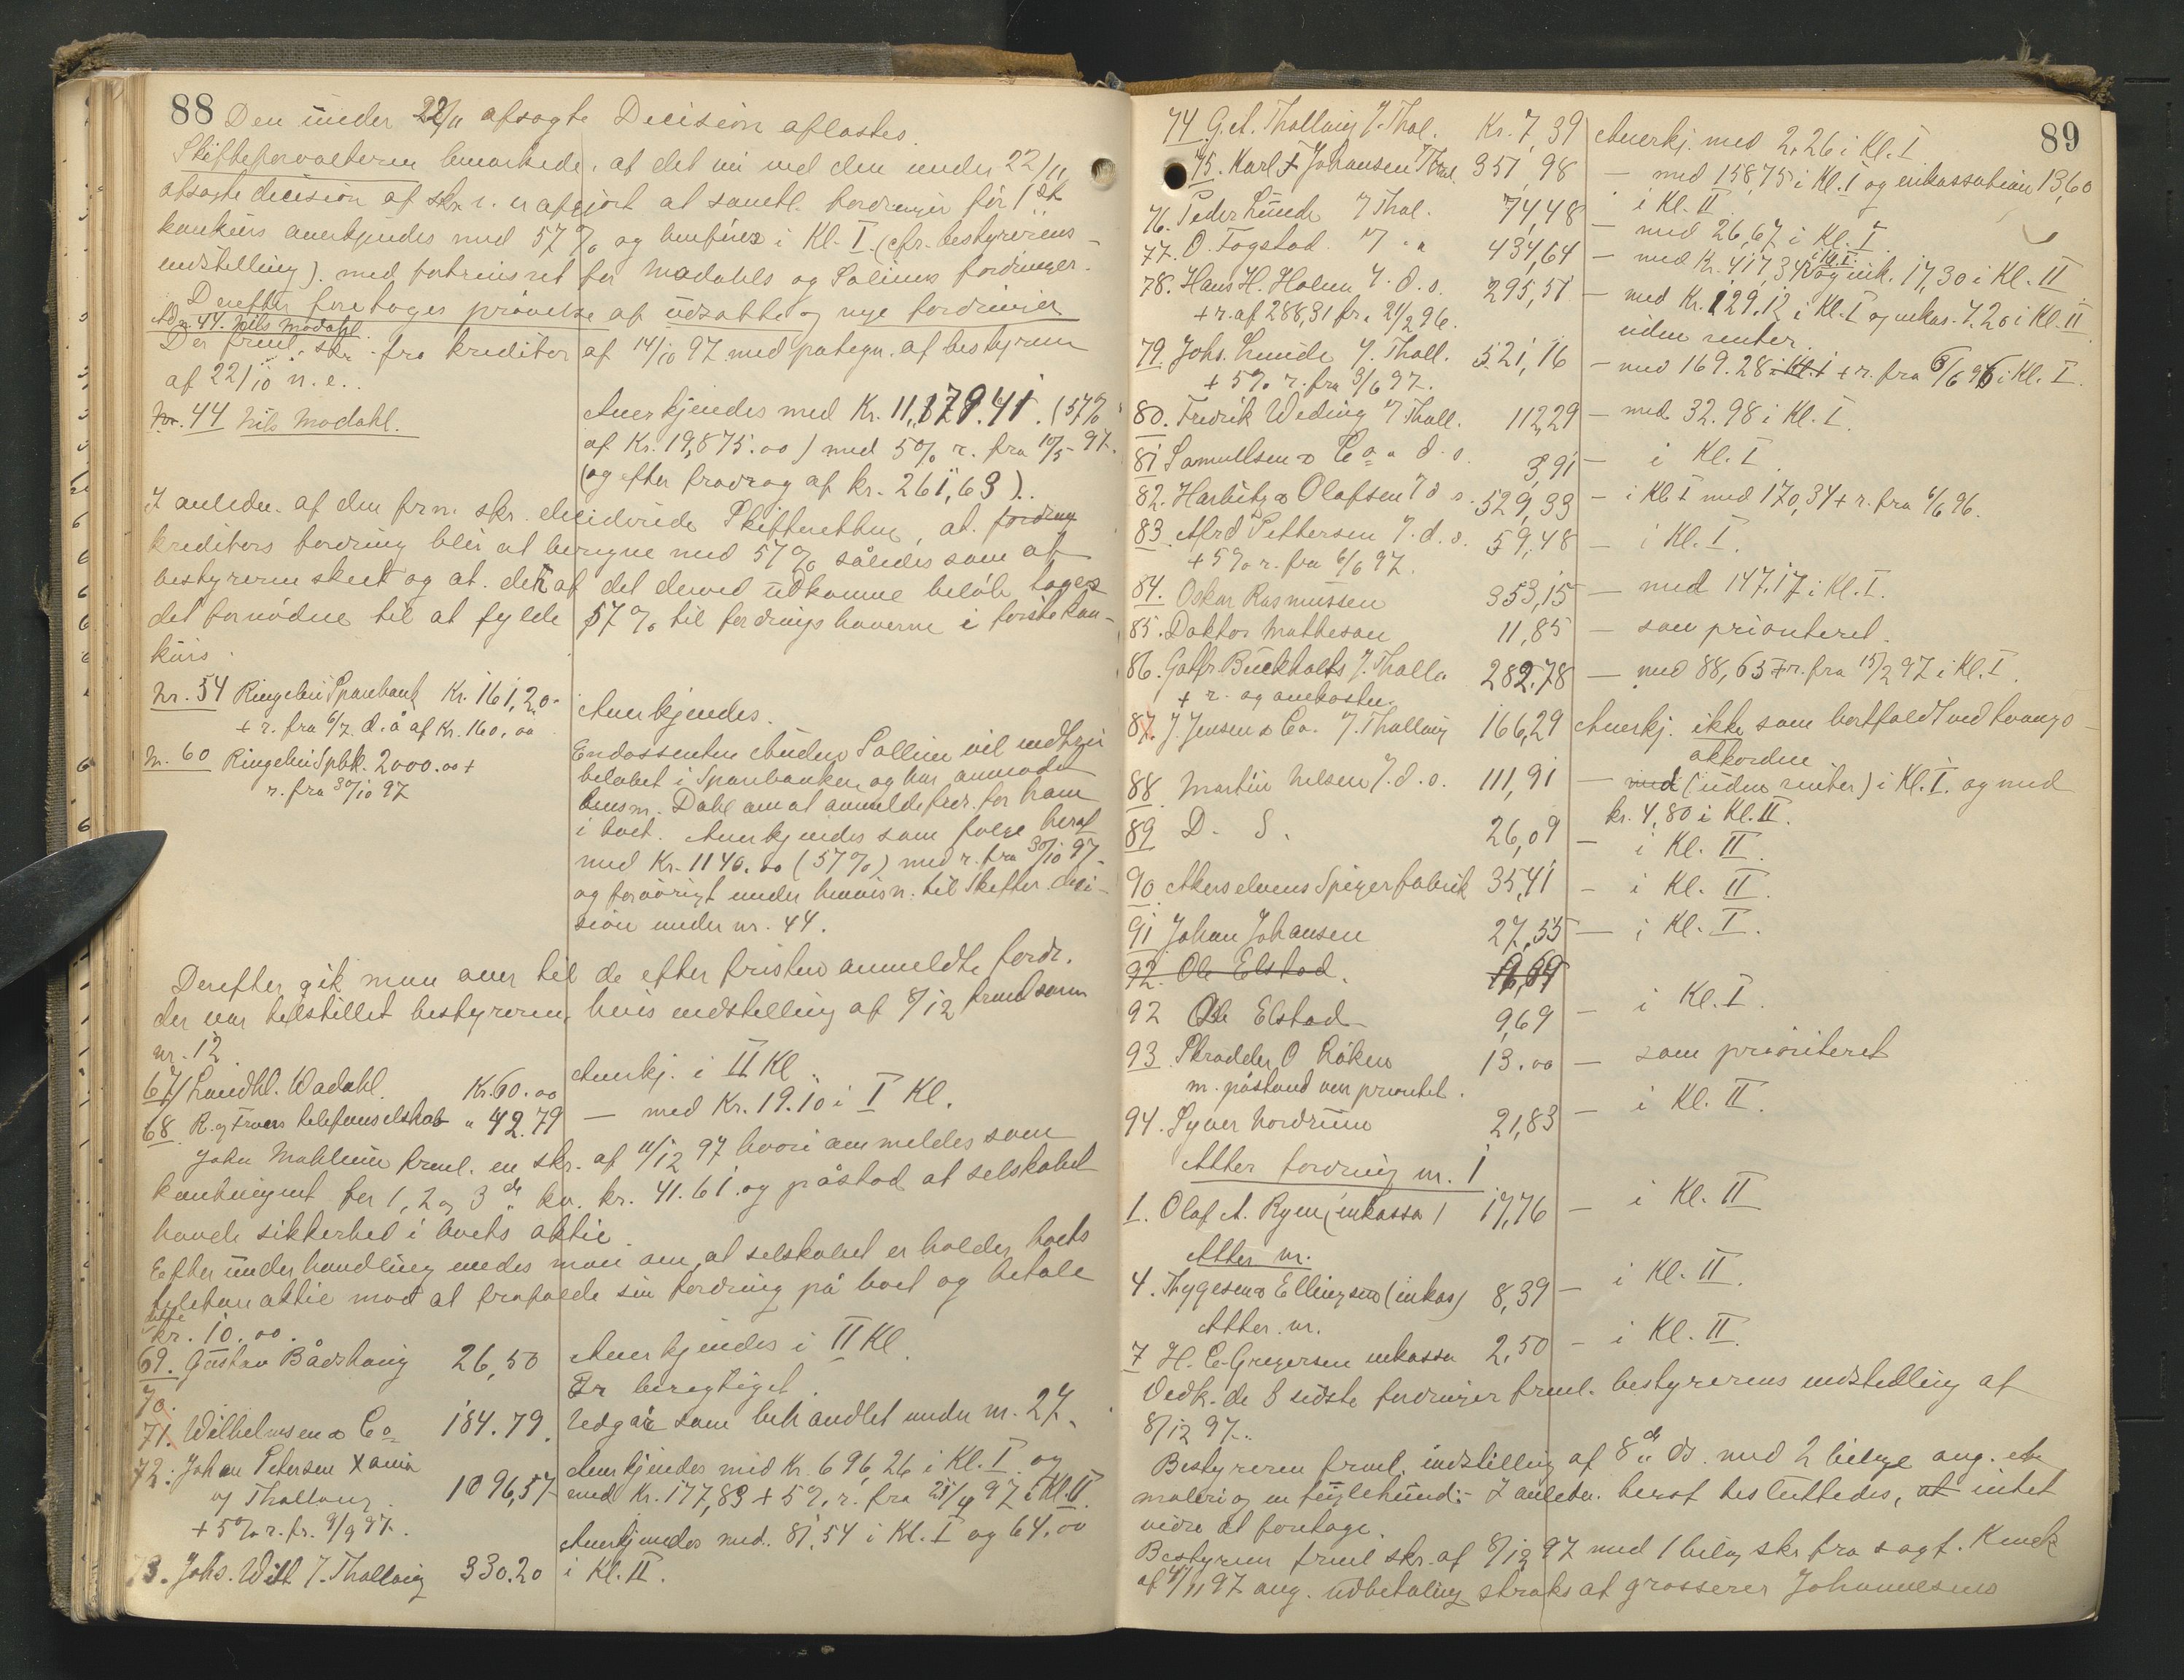 88
Den under 22/11 afsagte Decision oplæstes.
Skifteforvalteren bemærkede, at det nu ved den under 22/11
afsagte decision af skr. er afgjort at samtl. fordringer før 1ste
konkurs anerkjendes med 57% og henføres i Kl. I (cfr. bestyrerens
indstilling). med fortrinsret for Modahls og Solliens fordringer.
Derefter foretages prøvelse af udsatte og nye fordringer
Nr. 44. Nils Modahl
Der freml. skr. fra kreditor af 14/10 97 med påtegn. af bestyreren
af 22/10 n.e.
Nr. 44 Nils Modahl.
Anerkjendes med Kr. 11,179.41. (57%
af Kr. 19,875.00) med 5% r. fra 10/5 97.
(og efter fradrag af kr. 261,63).
I anledn. af den frn. skr. deciderede Skifteretten, at fordring
kreditors fordring blir at beregne med 57% således som af
bestyreren skeet og at der af det derved udkomne beløb tages
det fornødne til at fylde 57% til fordringshaverne i første kon-
kurs.
Nr. 54 Ringebu Sparebank Kr. 161,20
+ r. fra 6/7 d.å af Kr. 160,00
Anerkjendes.
Nr. 60 Ringebu Spbk. 2000.00 +
r. fra 30/10 97
Endossenten Anders Sollien vil indfri
beløbet i Sparebanken og har anmodet
lensm. Dahl om at anmelde fordr. for ham
i boet. Anerkjendes som følge heraf
med Kr. 1140.00 (57%) med r. fra 30/10 97
og forøvrigt under henvisn. til Skifter. deci-
sion under nr. 44.
Derefter gik man over til de efter fristen anmeldte fordr.
der var tilstillet bestyreren, hvis indstilling af 8/12 freml som
nr. 12
67/ Landhl. Wadahl. Kr. 60.00 Anerkj. i II Kl.
68. R. og Froens telefonselskab " 42.79 — med Kr. 19.10 i I Kl.
John Mæhlum freml. en skr. af 11/12 97 hvori anmeldes som
kontingent for 1, 2 og 3de kv. kr. 41.61. og påstod at selskabet
havde sikkerhed i boets aktie.
Efter underhandling enedes man om, at selskabet erholder boets
telefonaktie mod at frafalde sin fordring på boet og betale
dette kr. 10.00.
69. Gustav Bådshaug 26,50 Anerkjendes i II Kl.
70. Er beregtiget.
71. Wilhelmsen & Co 184.79. Udgår som behandlet under nr. 27.
72. Johan Petersen Xania
og Thallaug 1096,57
+ 5% r. fr. 9/9 97.
Anerkjendes med Kr. 696,26 i Kl. I og
med Kr. 177,83 + 5% r. fra 21/4 97 i Kl. II.
73. Johs. Witt 7. Thallaug 330.20
Anerkjendes med. 81,54 i Kl. I og 64.00
i Kl. II.
89
74 G. A. Thallaug 7. Thal. Kr. 7,39 Anerkj. med 2,26 i Kl. I
75. Karl F Johansen Thal 351,98 — med 158,75 i Kl. I og inkassation 13,60
i Kl. II
76. Peder Lunde 7 Thal. 74,48 — med 26,67 i Kl. I.
77. O. Fogstad 7 " " 434,64 — med Kr. 417,34 i Kl. I. og ink. 17,30 i Kl. II
78. Hans H. Holen 7. d.o. 295,51 — med Kr. 129,12 i Kl. I og inkas. 7.20 i Kl. II
+ r. af 288,31 fr. 21/2 96.
uden renter.
79. Johs. Lunde 7. Thall. 521,16 — med 169.28 i Kl. I + r. fra 3/6 96 i Kl. I.
+ 5% r. fra 3/6 97.
80. Fredrik Weding 7 Thall. 112,29 — med 32.98 i Kl. I.
81 Samuelsen & Co " d.o. 3,91 — i Kl. I.
82. Harbitz & Olafsen 7 d o. 529,33 — i Kl I med 170,34 + r. fra 6/6 96.
83. Alfrd Pettersen 7. d.o. 59,48 — i Kl. I.
+ 5% r. fra 6/6 97.
84. Oskar Rasmussen 353,15 — med 147.17 i Kl. I.
85. Doktor Matheson 11,85 — som prioriteret.
86. Gotfr. Buckholts 7. Thalla 282.78 — med 88,63 + r. fra 15/2 97 i Kl. I.
+ r. og omkostn.
87. J. Jensen & Co. 7. Thallaug 166,29 Anerkj. ikke som bortfaldt ved tvangs-
akkorden
88 Martin Nelsen 7. d.o. 111,91 — med (uden renter) i Kl. I. og med
kr. 4,80 i Kl. II.
89 D. S. 26,09 — i Kl. II.
90 Akerselvens Spigerfabrik 35,41 — i Kl. II.
91 Johan Johansen 27,55 — i Kl. I.
92. Ole Elstad. 9,69
92 Ole Elstad 9,69 — i Kl. I.
93. Skradder O Råken 13.00 — som prioriteret
m. påstand om prioritet.
94. Syver Nordrum 21,83 — i Kl. II.
Atter fordring nr. 1
1. Olaf A. Ryen (inkasso) 17,76 — i Kl. II
Atter nr.
4. Thygesen & Ellingsen (inkas) 8,39 — i Kl. II.
Atter nr.
7 H. C. Gregersen inkasso 2,50 — i Kl. II.
Vedk. de 3 sidste fordringer freml. bestyrerens indstilling af
8/12 97.
Bestyreren freml. indstilling af 8de ds. med 2 bilage ang. et
maleri og en fuglehund. I anledn. heraf besluttedes, at intet
videre at foretage.
Bestyreren freml skr. af 8/12 97 med 1 bilag skr. fra sagf. Kinck
af 4/11 97 ang. udbetaling straks at grosserer Johannesens